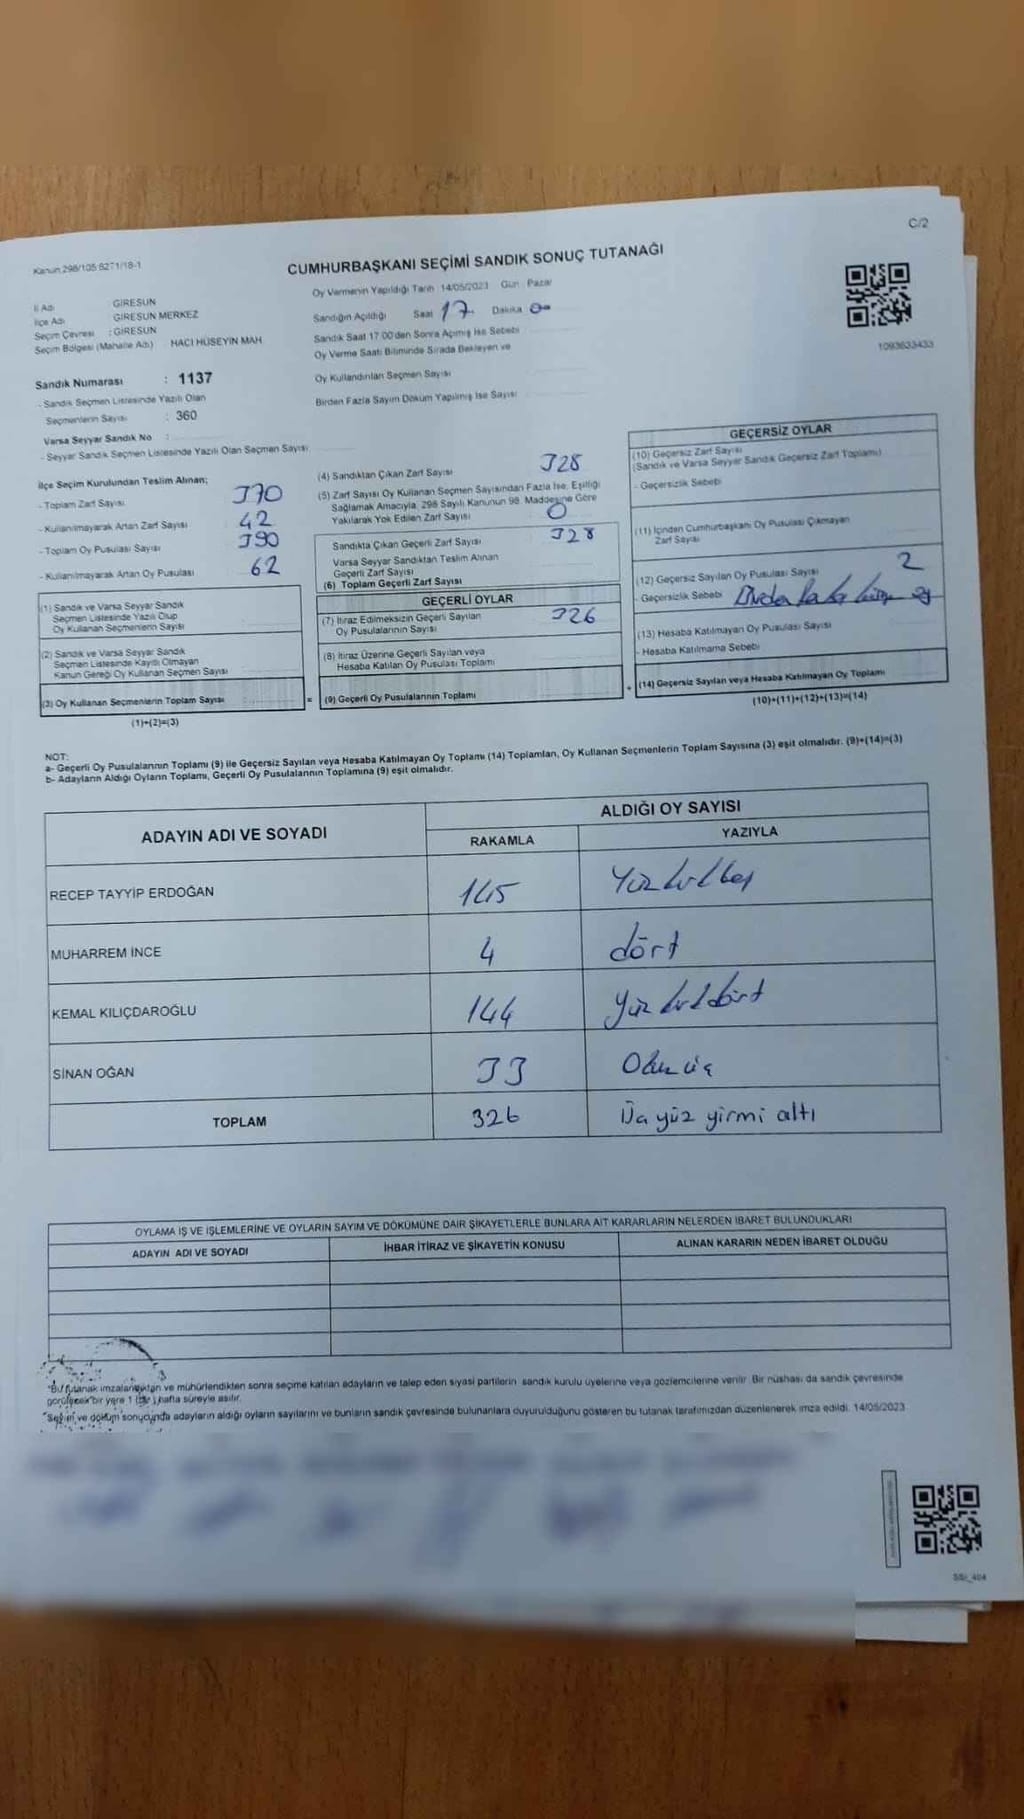 C/2
Kanun 298/105 6271/18-1
CUMHURBAŞKANI SEÇİMİ SANDIK SONUÇ TUTANAĞI
Oy Vermenin Yapıldığı Tarih 14/05/2023 Gün Pazar
İl Adı GİRESUN
İlçe Adı GİRESUN MERKEZ
Seçim Çevresi : GİRESUN
Seçim Bölgesi (Mahalle Adı) HACI HÜSEYİN MAH
Sandığın Açıldığı Saat 17 Dakika
Sandık Saat 17 00'den Sonra Açılmış İse Sebebi
Oy Verme Saati Bitiminde Sırada Bekleyen ve
Oy Kullandırılan Seçmen Sayısı
Birden Fazla Sayım Döküm Yapılmış İse Sayısı
1093633433
Sandık Numarası : 1137
- Sandık Seçmen Listesinde Yazılı Olan
Seçmenlerin Sayısı : 360
Varsa Seyyar Sandık No :
- Seyyar Sandık Seçmen Listesinde Yazılı Olan Seçmen Sayısı
İlçe Seçim Kurulundan Teslim Alınan;
- Toplam Zarf Sayısı 370
- Kullanılmayarak Artan Zarf Sayısı 42
- Toplam Oy Pusulası Sayısı 390
- Kullanılmayarak Artan Oy Pusulası 62
(1) Sandık ve Varsa Seyyar Sandık
Seçmen Listesinde Yazılı Olup
Oy Kullanan Seçmenlerin Sayısı
(2) Sandık ve Varsa Seyyar Sandık
Seçmen Listesinde Kayıtlı Olmayan
Kanun Gereği Oy Kullanan Seçmen Sayısı
(3) Oy Kullanan Seçmenlerin Toplam Sayısı
(1)+(2)=(3)
(4) Sandıktan Çıkan Zarf Sayısı 328
(5) Zarf Sayısı Oy Kullanan Seçmen Sayısından Fazla İse, Eşitliği
Sağlamak Amacıyla, 298 Sayılı Kanunun 98. Maddesine Göre
Yakılarak Yok Edilen Zarf Sayısı 0
Sandıkta Çıkan Geçerli Zarf Sayısı 328
Varsa Seyyar Sandıktan Teslim Alınan
Geçerli Zarf Sayısı
(6) Toplam Geçerli Zarf Sayısı
GEÇERLİ OYLAR
(7) İtiraz Edilmeksizin Geçerli Sayılan
Oy Pusulalarının Sayısı 326
(8) İtiraz Üzerine Geçerli Sayılan veya
Hesaba Katılan Oy Pusulası Toplamı
= (9) Geçerli Oy Pusulalarının Toplamı
GEÇERSİZ OYLAR
(10) Geçersiz Zarf Sayısı
(Sandık ve Varsa Seyyar Sandık Geçersiz Zarf Toplamı)
- Geçersizlik Sebebi
(11) İçinden Cumhurbaşkanı Oy Pusulası Çıkmayan
Zarf Sayısı
(12) Geçersiz Sayılan Oy Pusulası Sayısı 2
- Geçersizlik Sebebi
(13) Hesaba Katılmayan Oy Pusulası Sayısı
- Hesaba Katılmama Sebebi
+ (14) Geçersiz Sayılan veya Hesaba Katılmayan Oy Toplamı
(10)+(11)+(12)+(13)=(14)
NOT:
a- Geçerli Oy Pusulalarının Toplamı (9) ile Geçersiz Sayılan veya Hesaba Katılmayan Oy Toplamı (14) Toplamları, Oy Kullanan Seçmenlerin Toplam Sayısına (3) eşit olmalıdır. (9)+(14)=(3)
b- Adayların Aldığı Oyların Toplamı, Geçerli Oy Pusulalarının Toplamına (9) eşit olmalıdır.
ADAYIN ADI VE SOYADI
ALDIĞI OY SAYISI
RAKAMLA YAZIYLA
RECEP TAYYİP ERDOĞAN 145 Yüz kırk beş
MUHARREM İNCE 4 dört
KEMAL KILIÇDAROĞLU 144 Yüz kırk dört
SİNAN OĞAN 33 Otuz üç
TOPLAM 326 Üç yüz yirmi altı
OYLAMA İŞ VE İŞLEMLERİNE VE OYLARIN SAYIM VE DÖKÜMÜNE DAİR ŞİKAYETLERLE BUNLARA AİT KARARLARIN NELERDEN İBARET BULUNDUKLARI
ADAYIN ADI VE SOYADI İHBAR İTİRAZ VE ŞİKAYETİN KONUSU ALINAN KARARIN NEDEN İBARET OLDUĞU
*Bu tutanak imzalandıktan ve mühürlendikten sonra seçime katılan adayların ve talep eden siyasi partilerin sandık kurulu üyelerine veya gözlemcilerine verilir. Bir nüshası da sandık çevresinde
görülecek bir yere 1 (bir) hafta süreyle asılır.
*Seçim ve döküm sonucunda adayların aldığı oyların sayılarını ve bunların sandık çevresinde bulunanlara duyurulduğunu gösteren bu tutanak tarafımızdan düzenlenerek imza edildi. 14/05/2023